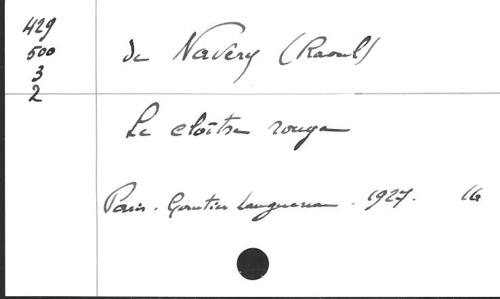 429
500
3
2
de Navery (Raoul)
Le cloître rouge
Paris. Gautier Languereau. 1927. 16